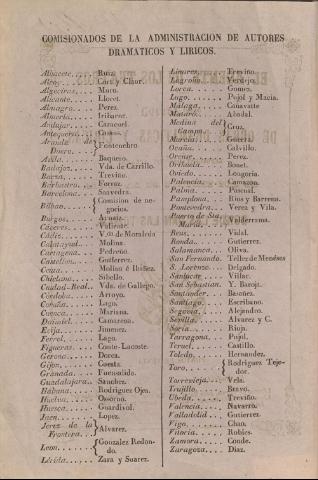 COMISIONADOS DE LA ADMINISTRACION DE AUTORES
DRAMATICOS Y LIRICOS.
Albacete. Ruiz.
Alcoy. y Chor.
Algeciras. Muro.
Alicante. Lloret.
Almagro. Perez.
Almería. Iribarne.
Andujar. Caracuel.
Antequera. Casaus.
Aranda de Duero. Fontenebro
Avila. Baquero.
Badajoz. Vda. de Carrillo.
Baeza. Treviño.
Barbastro. Ferraz.
Barcelona. Saavedra.
Bilbao. Comision de negocios.
Burgos. Arnaiz.
Cáceres. Valiente.
Cádiz. V. de Moraleda
Calatayud. Molina.
Cartagena. Pedreño.
Castellon. Gutierrez.
Ceuta. Molina é Ibáñez
Chiclana. Sibello.
Ciudad-Real. Vda. de Gallego.
Córdoba. Arroyo.
Coruña. Lago.
Cuenca. Mariana.
Daimiel. Camarena.
Ecija. Jimenez.
Ferrol. Lago.
Figueras. Conte-Lacoste
Gerona. Dorca.
Gijon. Cuesta.
Granada. Fuensalido.
Guadalajara. Sanchez.
Habana. Rodriguez Ojea.
Huelva. Osorno.
Huesca. Guardivol.
Jaen. Lopez.
Jerez de la Frontera. Alvarez.
Leon. Gonzalez Redondo.
Lérida. Zara y Suarez.
Linares. Treviño.
Logroño. Verdejo.
Lorca. Gomez.
Lugo. Pujol y Macía.
Málaga. Cañavate
Mataró. Abadal.
Medina del Campo. Cruz.
Murcia. Guerra.
Ocaña. Calvillo.
Orense. Perez.
Orihuela. Bonet.
Oviedo. Longoria.
Palencia. Camazon.
Palma. Pascual.
Pamplona. Rios y Barrena.
Pontevedra. Verea y Vila.
Puerto de Sta. María. Valderrama.
Reus. Vidal.
Ronda. Gutierrez.
Salamanca. Oliva.
San Fernando. Teller de Menéses
S. Lorenzo. Delgado.
Sanlúcar. Villar.
San Sebastian. Y. Baroja.
Santander. Basañez.
Santiago. Escribano.
Segovia. Alejandro.
Sevilla. Alvarez y C.
Soria. Rioja.
Tarragona. Pujol.
Teruel. Castillo.
Toledo. Hernandez.
Toro. Rodriguez Tejedor.
Torrevieja. Vela.
Trujillo. Bravo.
Ubeda. Treviño.
Valencia. Navarro.
Valladolid. Gutierrez.
Vigo. Chao.
Vitoria. Robles.
Zamora. Conde.
Zaragoza. Diaz.